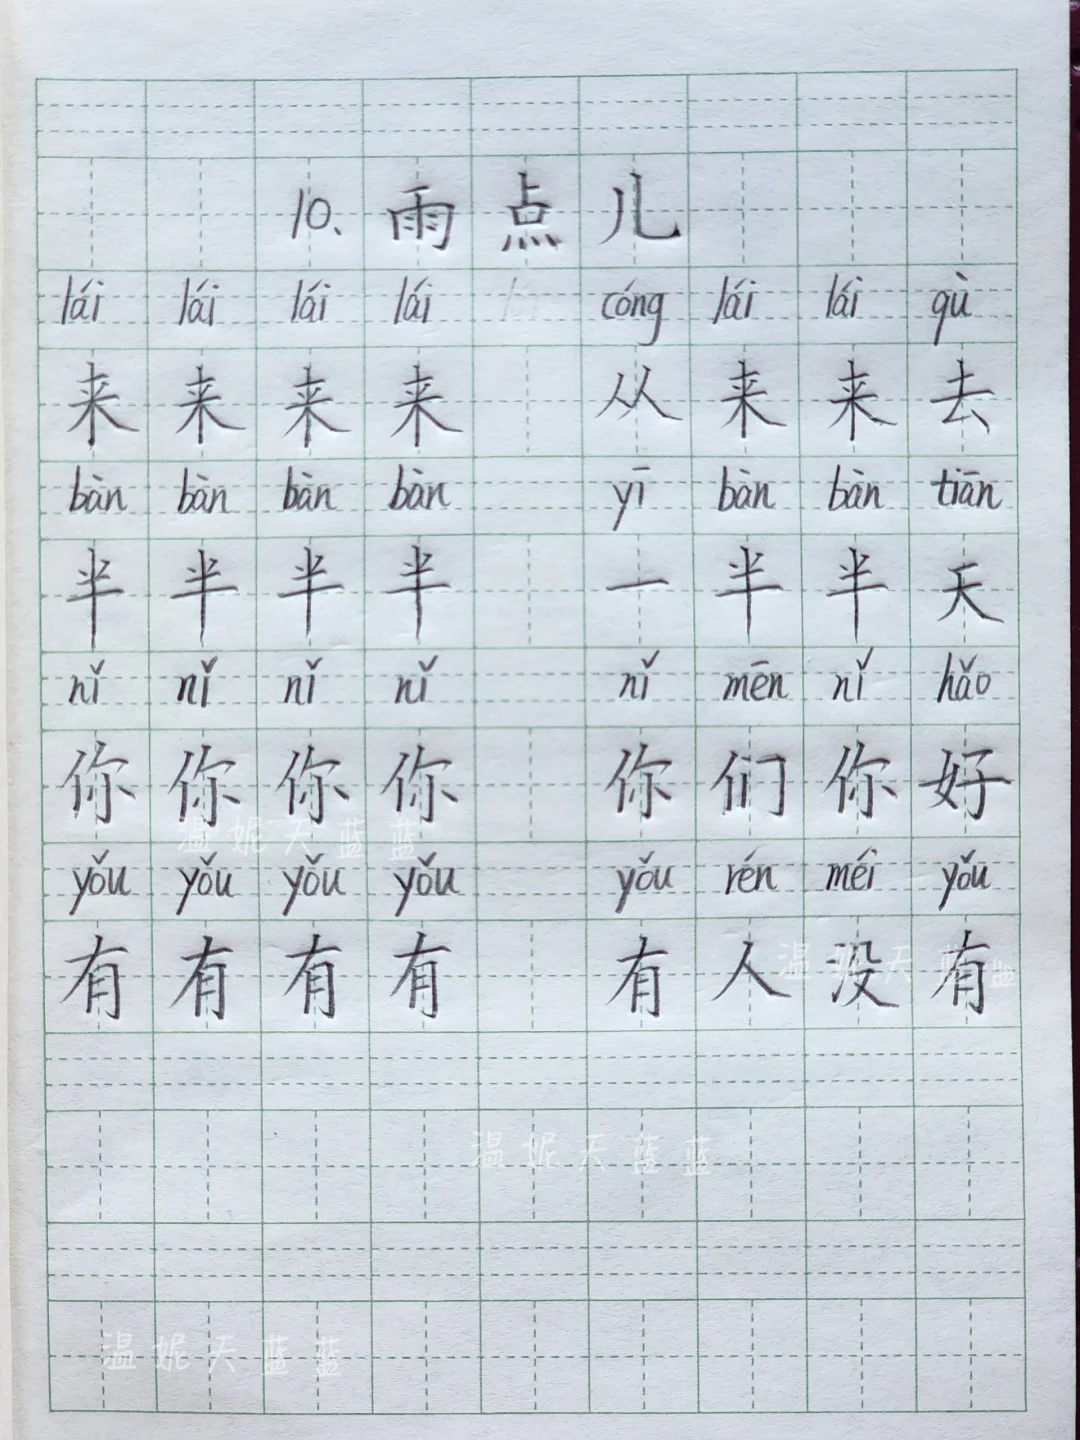 10、雨点儿
lái lái lái lái cóng lái lái qù
来来来来 从来来去
bàn bàn bàn bàn yī bàn bàn tiān
半半半半 一半半天
nǐ nǐ nǐ nǐ nǐ mēn nǐ hǎo
你你你你 你们你好
温妮天蓝蓝
yǒu yǒu yǒu yǒu yǒu rén méi yǒu
有有有有 有人没有
温妮天蓝蓝
温妮天蓝蓝
温妮天蓝蓝